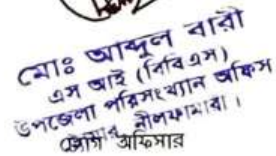 মোঃ আব্দুল বারী
এস আই (বিবিএস)
উপজেলা পরিসংখ্যান অফিস
নীলফামারী।
অফিসার